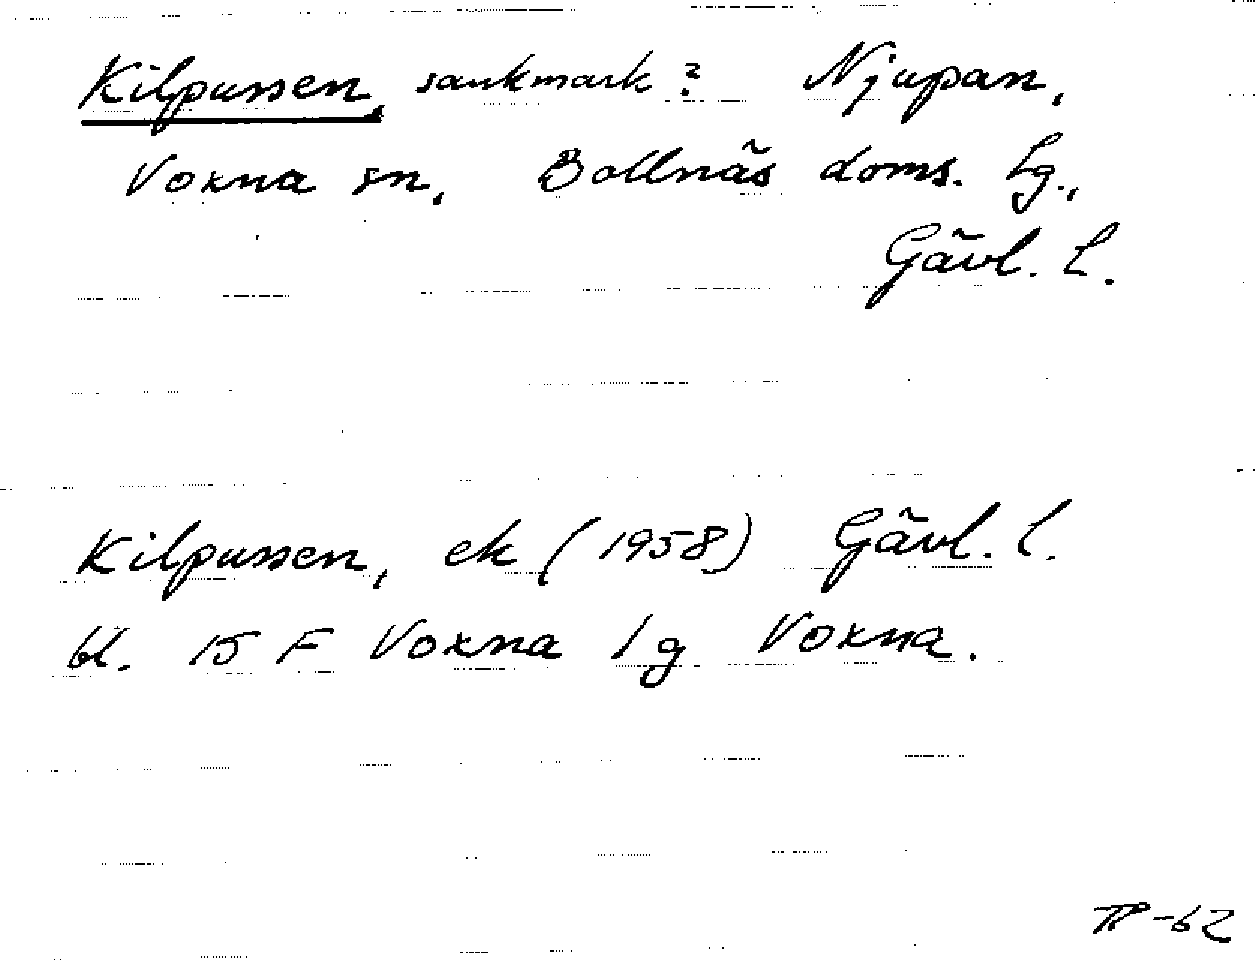 Kilpussen, sankmark? Njupan,
Voxna sn, Bollnäs doms. Lg.,
Gävl. L.
Kilpussen, ek (1958) Gävl. l.
bl. 15 F Voxna 1 g Voxna.
TP-62